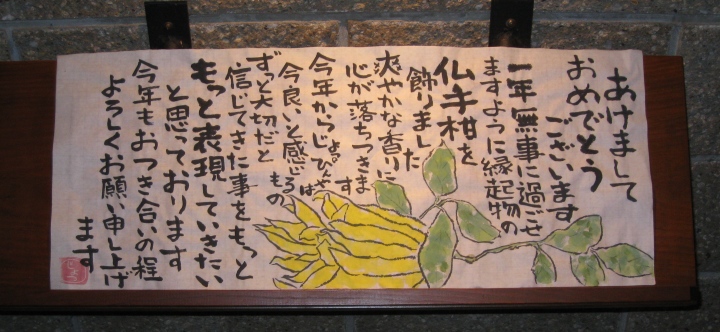 あけまして
おめでとう
ございます
一年無事に過ごせ
ますように縁起物の
仏手柑を
飾りました
爽やかな香りに
心が落ちつきま
す
今年からじょぴんぐは
今良いと感じるもの
ずっと大切だと
信じてきた事をもっと
もっと表現していきたい
と思っております
今年もおつき合いの程
よろしくお願い申し上げ
ます